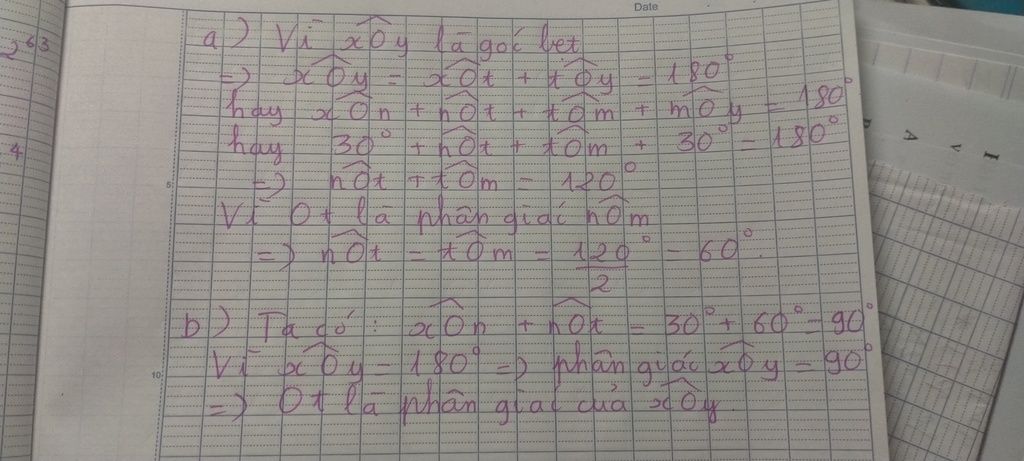 Date
a) Vì xÔy là góc bẹt
=> xÔy = xÔt + tÔy = 180°
hay xÔn + nÔt + tÔm + mÔy = 180°
hay 30° + nÔt + tÔm + 30° = 180°
5
=> nÔt + tÔm = 120°
Vì Ot là phân giác nÔm
=> nÔt = tÔm = 120°/2 = 60°.
b) Ta có: xÔn + nÔt = 30° + 60° = 90°
Vì xÔy = 180° => phân giác xÔy = 90°
10
=> Ot là phân giác của xÔy.
263
4
A
V
I